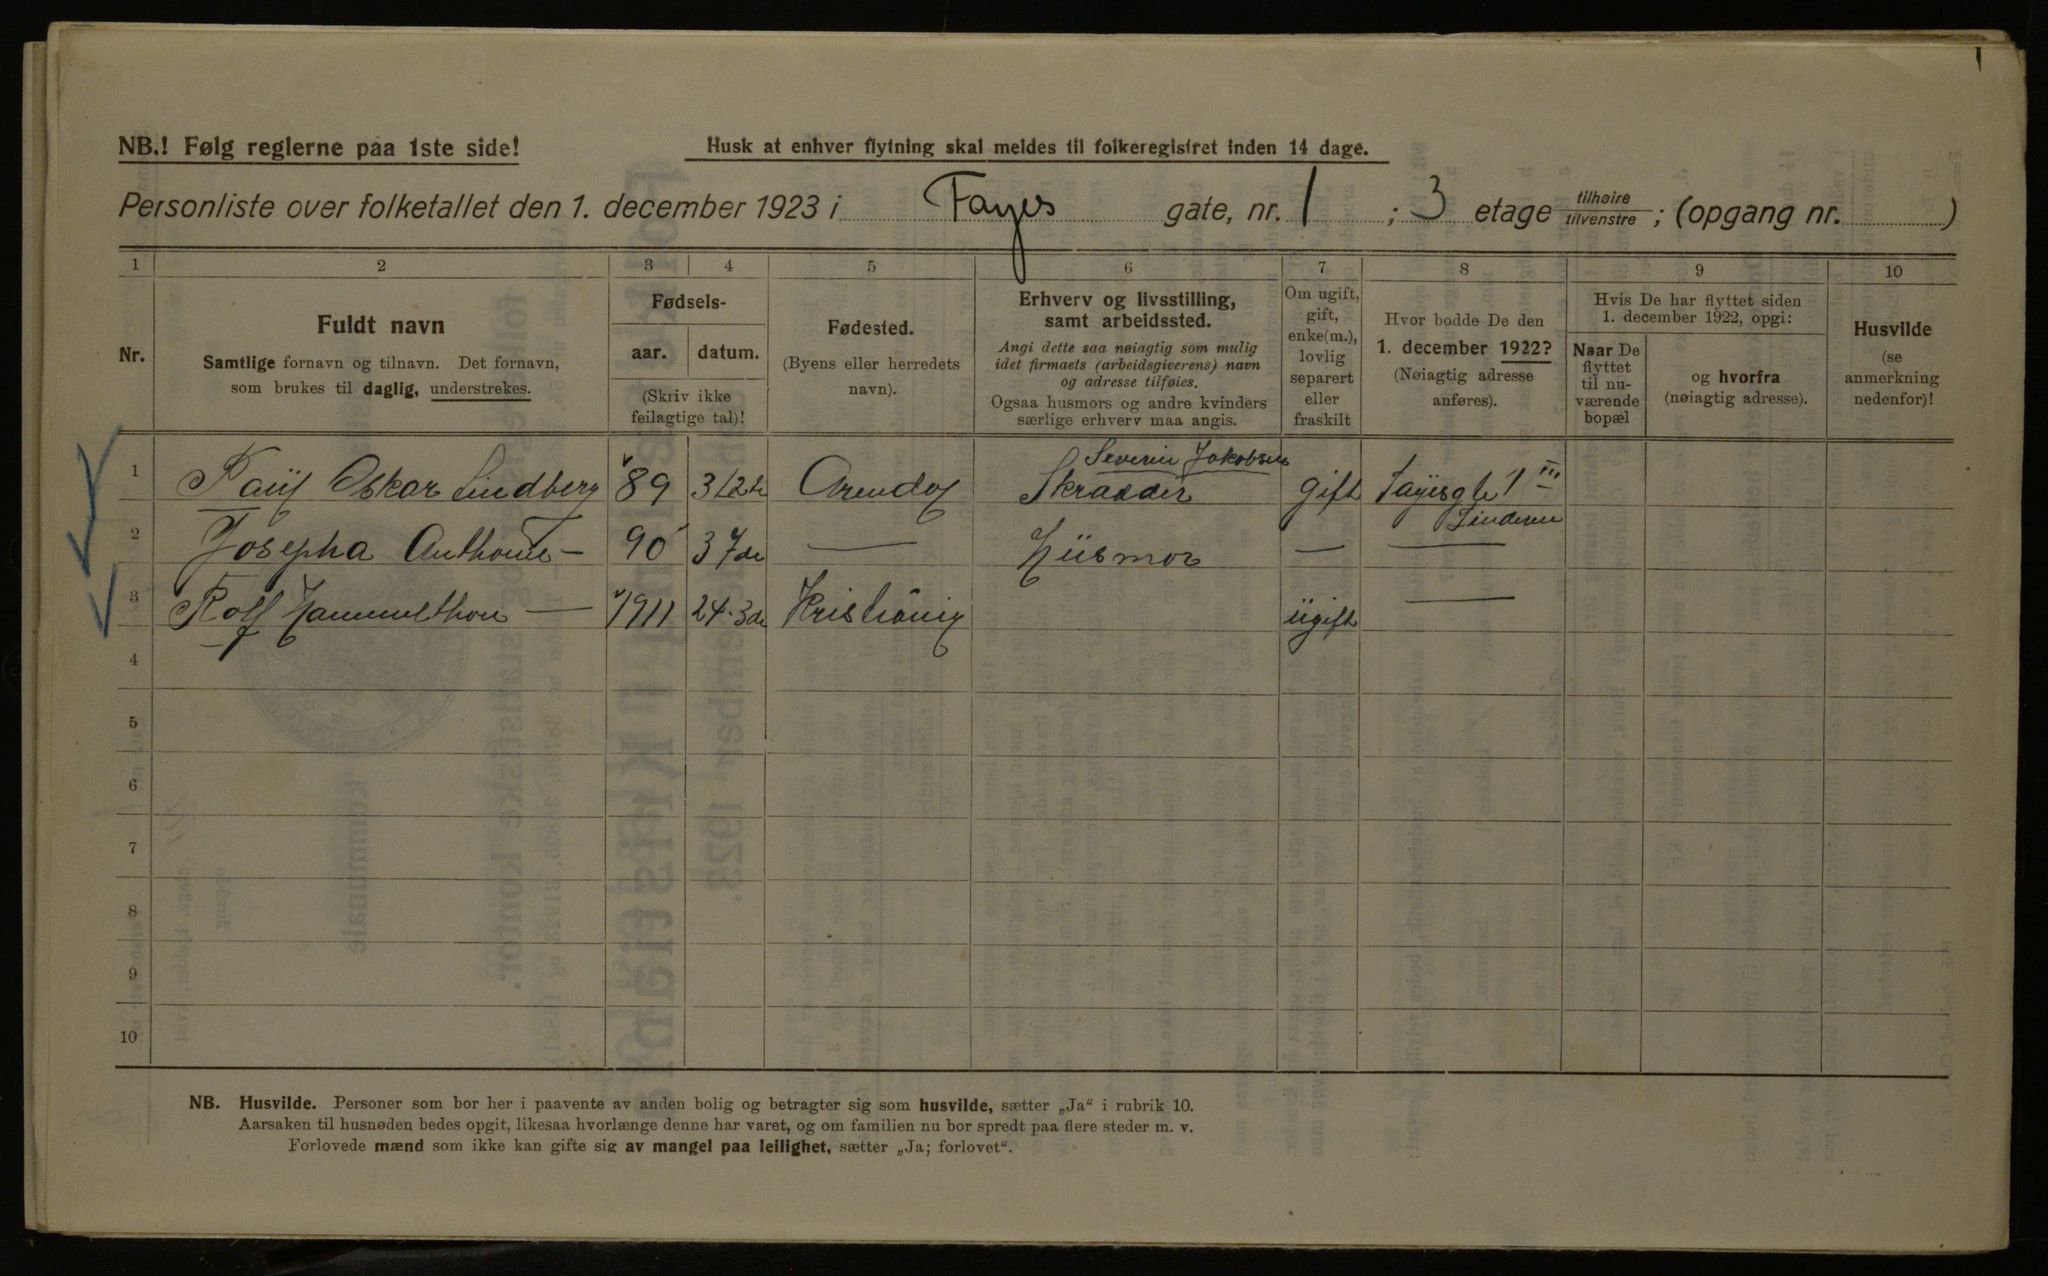 NB.! Følg reglerne paa 1ste side!
Husk at enhver flytning skal meldes til folkeregistret inden 14 dage.
Personliste over folketallet den 1. december 1923 i Fayes gate, nr. 1 ; 3 etage tilhøire tilvenstre ; (opgang nr. )
1 2 3 4 5 6 7 8 9 10
Nr.
Fuldt navn
Samtlige fornavn og tilnavn. Det fornavn,
som brukes til daglig, understrekes.
Fødsels-
aar. datum.
(Skriv ikke
feilagtige tal)!
Fødested.
(Byens eller herredets
navn).
Erhverv og livsstilling,
samt arbeidssted.
Angi dette saa nøiagtig som mulig
idet firmaets (arbeidsgiverens) navn
og adresse tilføies.
Ogsaa husmors og andre kvinders
særlige erhverv maa angis.
Om ugift,
gift,
enke(m.),
lovlig
separert
eller
fraskilt
Hvor bodde De den
1. december 1922?
(Nøiagtig adresse
anføres).
Hvis De har flyttet siden
1. december 1922, opgi:
Naar De
flyttet
til nu-
værende
bopæl
og hvorfra
(nøiagtig adresse).
Husvilde
(se
anmerkning
nedenfor)!
Severin Jakobsen
1 Oskar Lindberg 89 Arendal Skrædder gift 1 III
2 Josepha — 90 — Husmor — —
3 Rolf — 1911 Kristiania ugift —
4
5
6
7
8
9
10
NB. Husvilde. Personer som bor her i paavente av anden bolig og betragter sig som husvilde, sætter „Ja" i rubrik 10.
Aarsaken til husnøden bedes opgit, likesaa hvorlænge denne har varet, og om familien nu bor spredt paa flere steder m. v.
Forlovede mænd som ikke kan gifte sig av mangel paa leilighet, sætter „Ja; forlovet".